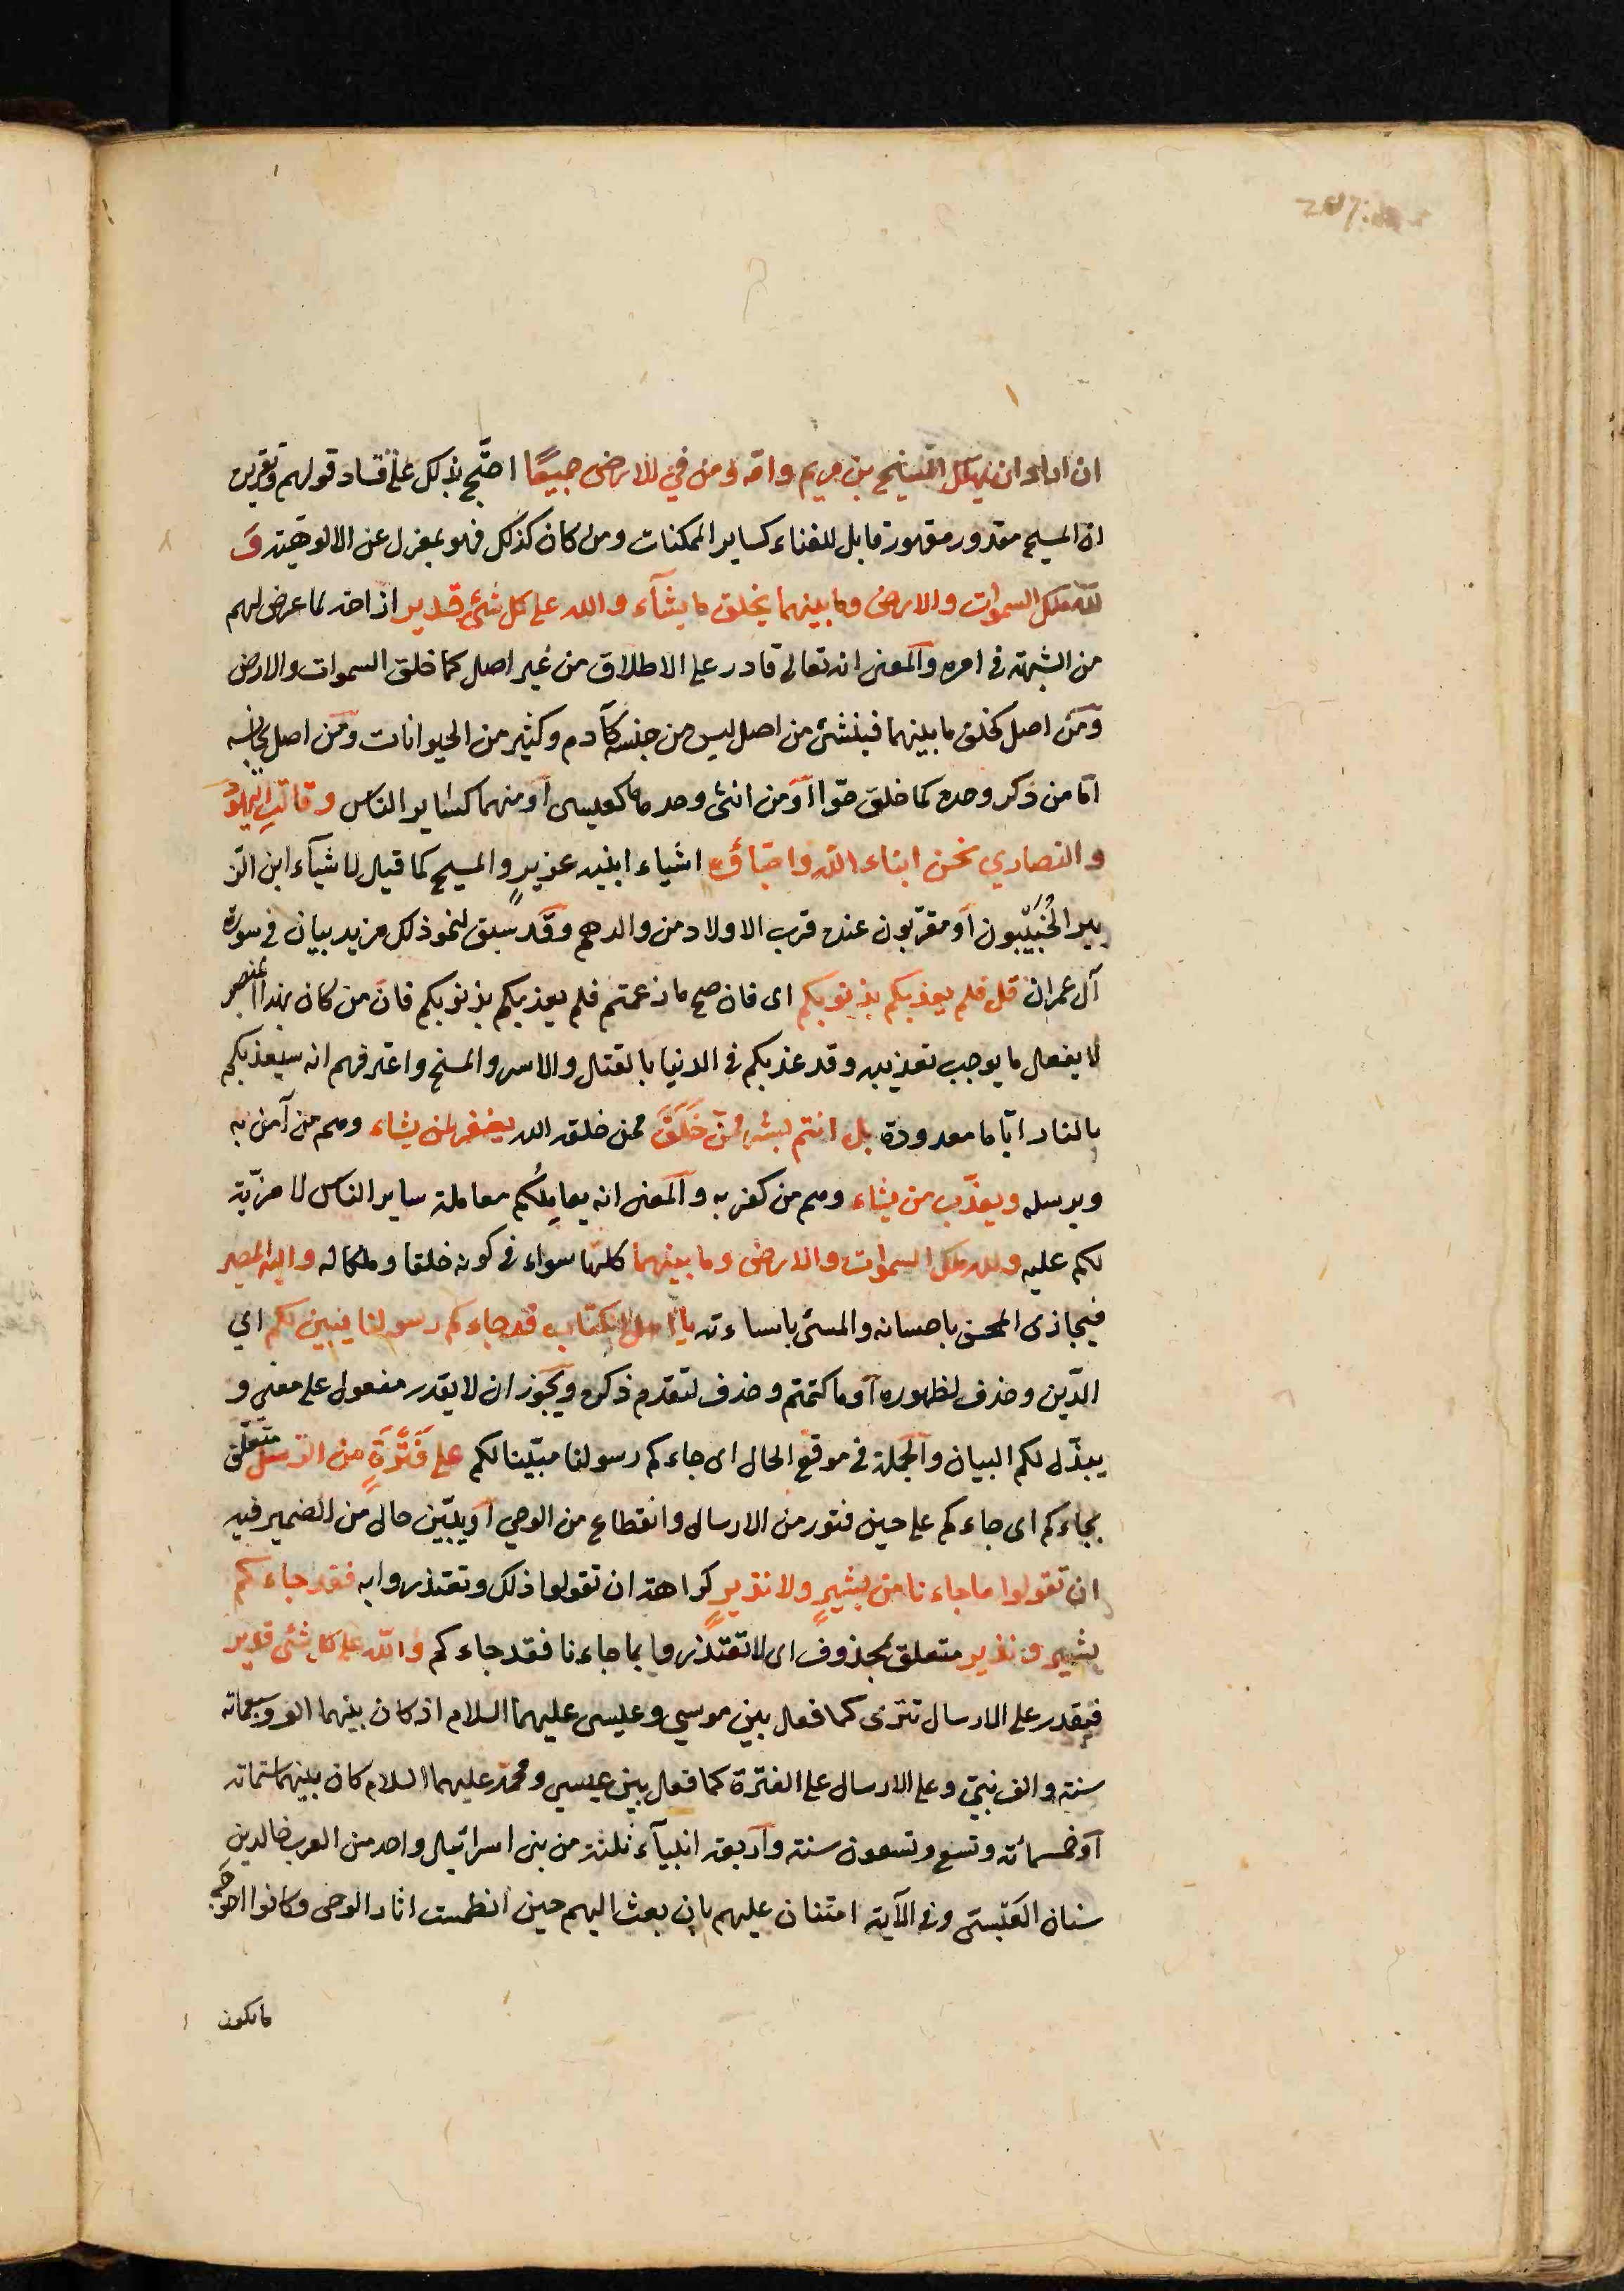 ان اراد ان يهلك المسيح بن مريم وامه ومن في الارض جميعًا احتّج بذلك على فساد قولهم وتقريره
ان المسيح مقدور مقهور قابل للفناء كساير الممكنات ومن كان كذلك فهو بمعزل عن الالوهيّته وَ
لله ملك السموات والارض وما بينهما يخلق ما يشآء والله على كل شئ قدير ازاحة لما عرض لهم
من الشبهة في امره والمعنى انه تعالى قادر على الاطلاق من غير اصل كما خلق السموات والارض
ومن اصل كخلق ما بينهما فينشئ من اصل ليس من جنسه كآدم وكثير من الحيوانات ومن اصل يجانسه
امّا من ذكر وحده كما خلق حوّا او من انثى وحدها كعيسى او منهما كساير الناس وقالتِ اليهودُ
والنصارى نحن ابناء الله واحبّاؤه اشياء ابنيه عزيرٍ والمسيح كما قيل لاشيآء ابن الز
بير الخُبَيْبون او مقرّبون عنده قرب الاولاد من والدهم وقد سبق لنحو ذلك مزيد بيان في سورة
آل عمران قل فلم يعذبكم بذنوبكم اى فان صح ما زعمتم فلم يعذبكم بذنوبكم فانّ من كان بهذا المنصب
لا يفعل ما يوجب تعذيبه وقد عذبكم في الدنيا بالقتل والاسر والمسخ واعترفهم انه سيعذبكم
بالنار ايّاما معدودة بل انتم بشر ممّن خَلَقَ ممن خلقه الله يغفر لمن يشاء وهم من آمن به
وبرسله ويعذّب من يشاء وهم من كفر به والمعنى انه يعاملُكم معاملة ساير الناس لا مزيّة
لكم عليه ولله ملك السموات والارض وما بينهما كلها سواء في كونه خلقا وملكا له واليه المصير
فيجازى المحسن باحسانه والمسئ باساءته يا اهل الكتاب قد جاءكم رسولنا يبين لكم اي
الدّين وحذف لظهوره او ما كتمتم وحذف لتقدم ذكره ويجوز ان لا يقدر مفعول على معنى و
يبذّل لكم البيان والجملة في موقع الحال اى جاءكم رسولنا مبيّنا لكم على فَتْرَةٍ من الرسل متعلق
بجاءكم اى جاءكم على حين فتور من الارسال وانقطاع من الوحي او يبيّن حال من الضمير فيه
ان تقولوا ما جاءنا من بشيرٍ ولا نذيرٍ كراهة ان تقولوا ذلك وتعتذروا به فقد جاءكم
بشير ونذير متعلق بمحذوف اى لا تعتذروا بما جاءنا فقد جاءكم والله على كل شئ قدير
فيقدر على الارسال تترى كما فعل بين موسي وعيسى عليهما السلام اذ كان بينهما الف وسبعمائه
سنة والف نبيّ وعلى الارسال على الفترة كما فعل بين عيسى ومحمّد عليهما السلام كان بينهما ستمائه
او خمسمائه وتسع وتسعون سنة واربعة انبيآء ثلثة من بنى اسرائيل واحد من العرب خالد بن
سنان العَبْسيّ وفى الآية امتنان عليهم بان بعث اليهم حين انطمست اثار الوحى وكانوا احوجَ
ما يكون